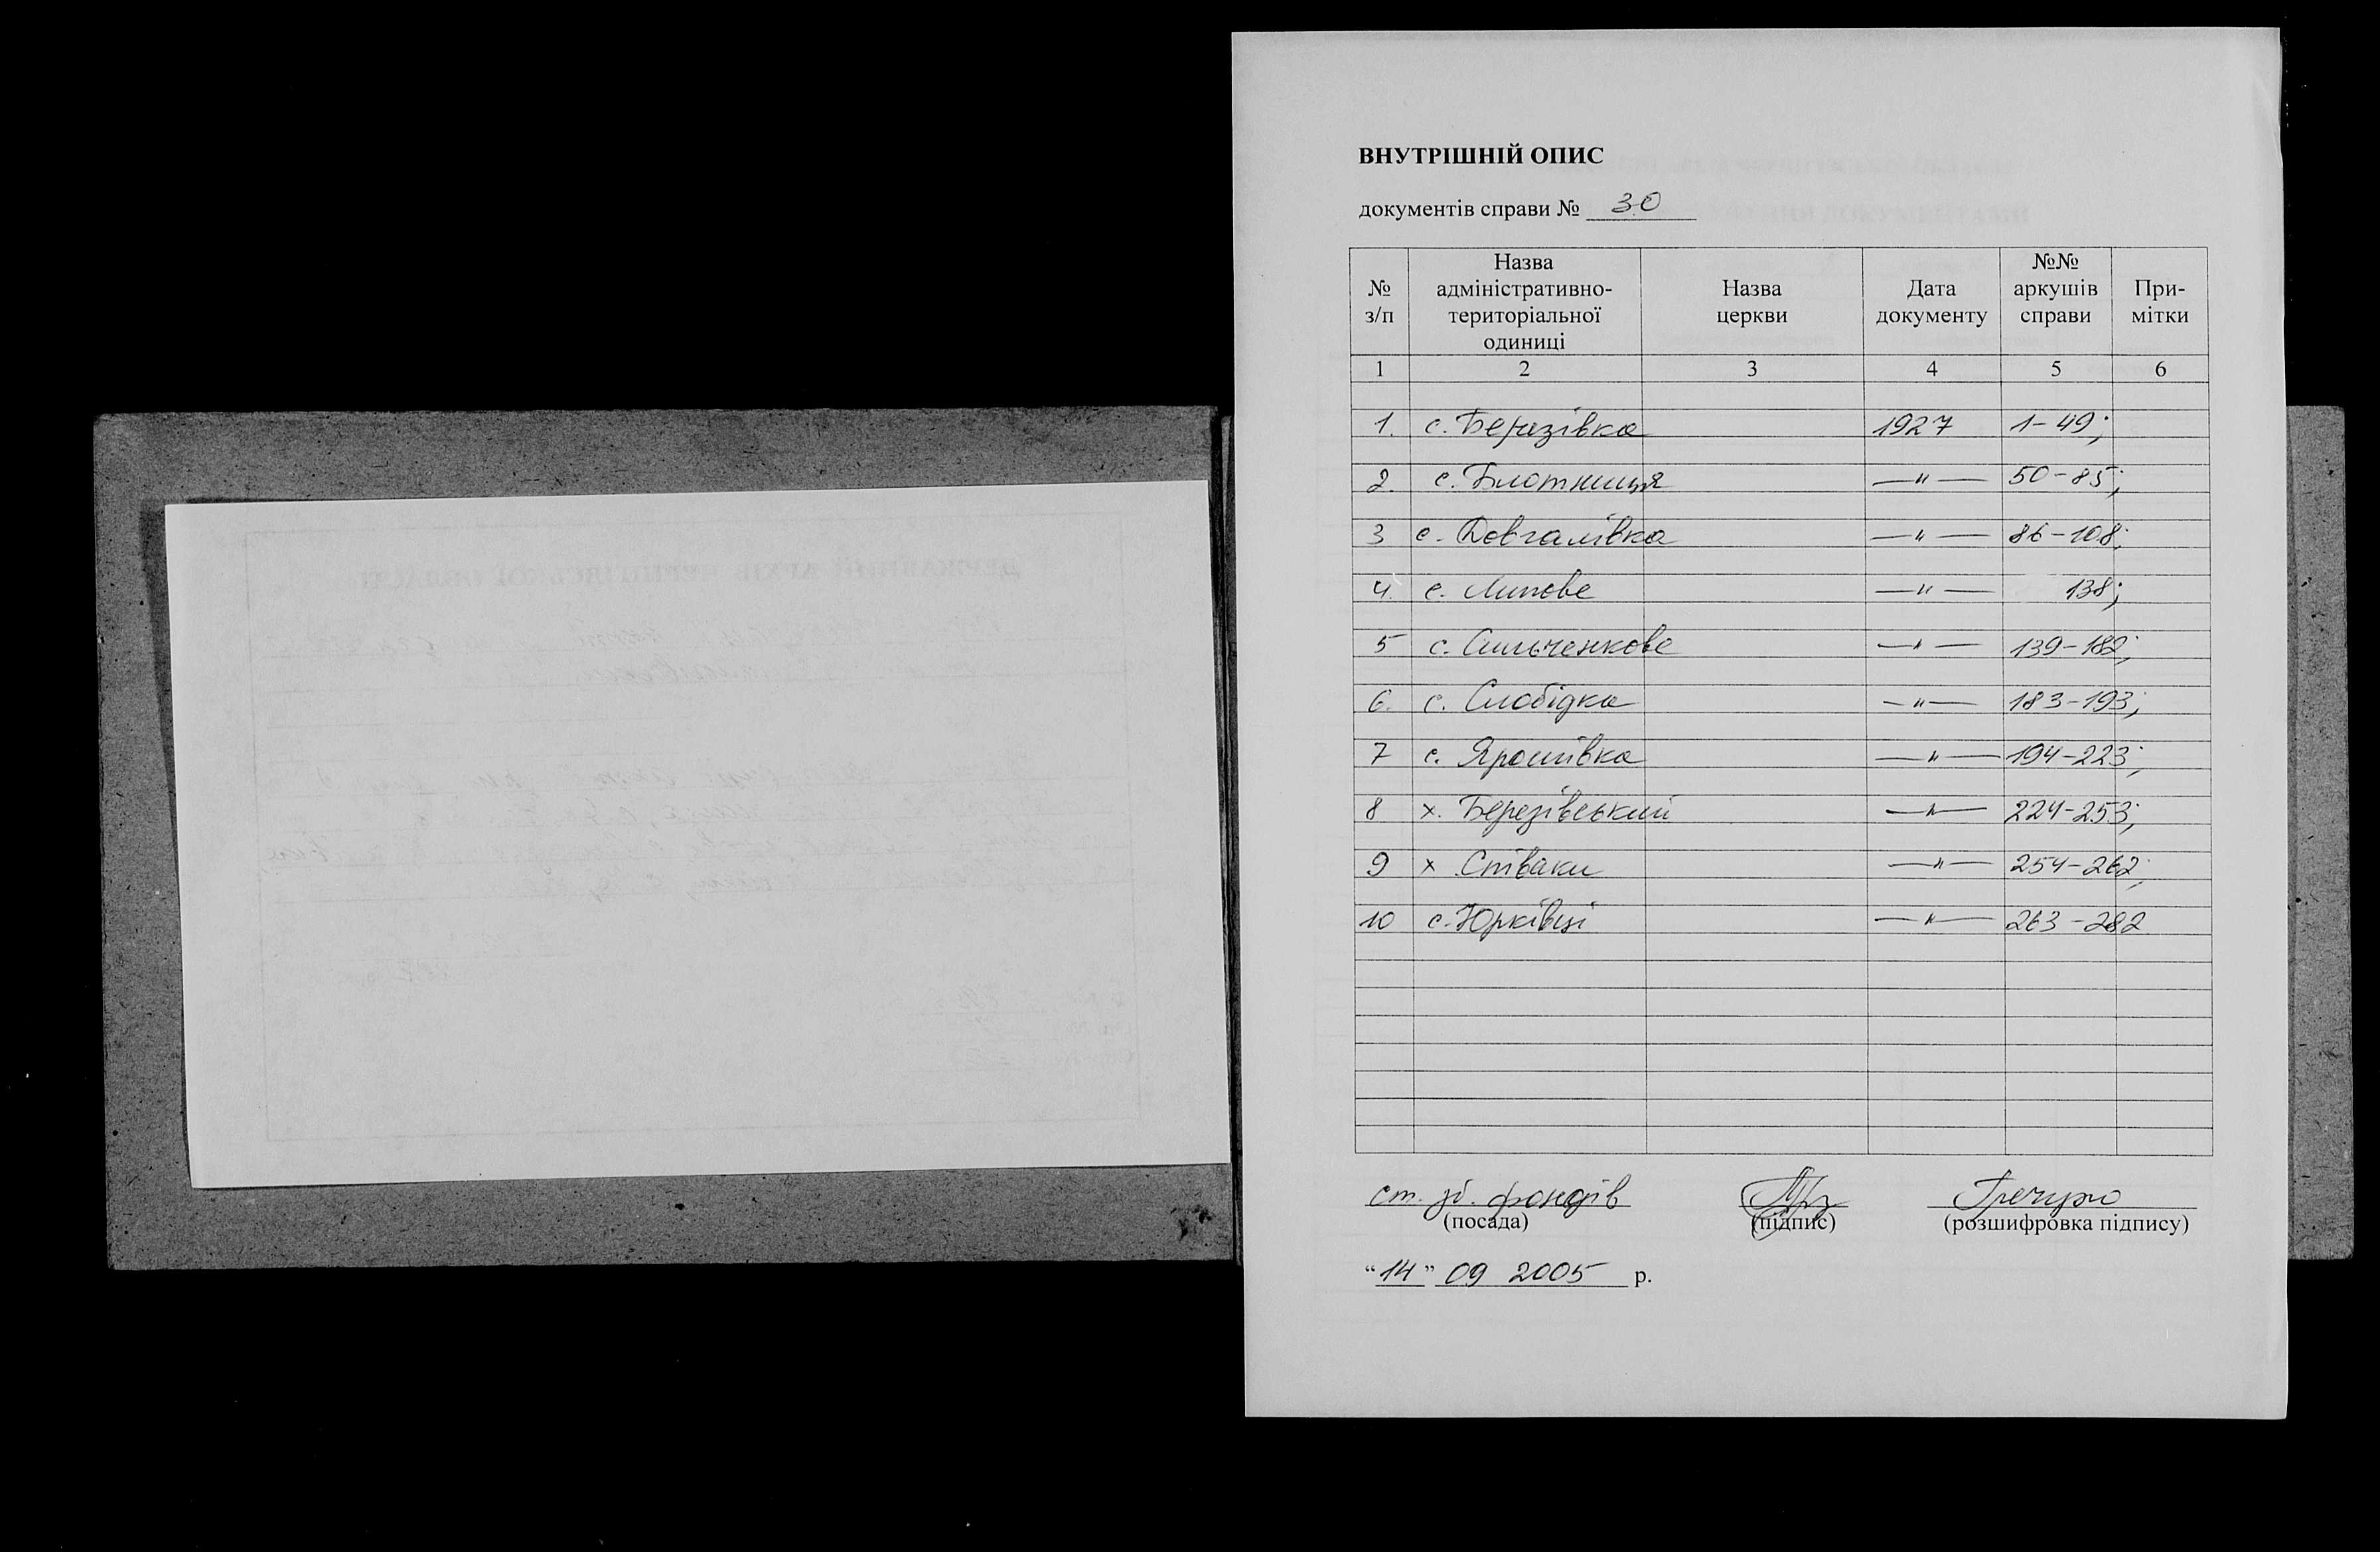 ВНУТРІШНІЙ ОПИС
документів справи № 30
№ з/п
Назва адміністративно-територіальної одиниці
Назва церкви
Дата документу
№№ аркушів справи
При-мітки
1 2 3 4 5 6
1. с. Березівка 1927 1-49;
2. с. Блотниця —"— 50-85;
3 с. Довгалівка —"— 86-108;
4. с. Липове —"— 138;
5 с. Сильченкове —"— 139-182;
6. с. Слобідка —"— 183-193;
7 с. Ярошівка —"— 194-223;
8 х. Березівський —"— 224-253;
9 х Співаки —"— 254-262;
10 с. Юрківці —"— 263-282
ст. зб. фондів
(посада) (підпис) (розшифровка підпису)
“14” 09 2005 р.